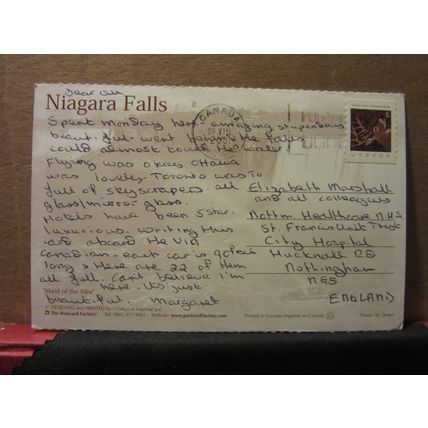 Dear All
Niagara Falls
Spent Monday here - amazing stupendous
beautiful - went behind the falls
could almost touch the water!
Flying was okay Ottawa
was lovely - Toronto was to
full of skyscrapers all
glass/mirror glass.
Hotels have been 5 star.
luxurious. Writing this
card aboard the VIA
Canadian - each car is 90 feet
long & there are 22 of them
all full. Can't believe I'm
here - it's just
beautiful. Margaret
CANADA
Elizabeth Marshall
and all colleagues
Nottm. Healthcare N.H.S
St. Francis Unit Trust
City Hospital
Hucknall RD
Nottingham
NG5
ENGLAND
"Maid of the Mist"
© DESIGNED and PRINTED by / Conçu et imprimé par
The Postcard Factory
Tel: (905) 477-9901 Website: www.postcardfactory.com
Printed in Canada/Imprimé au Canada